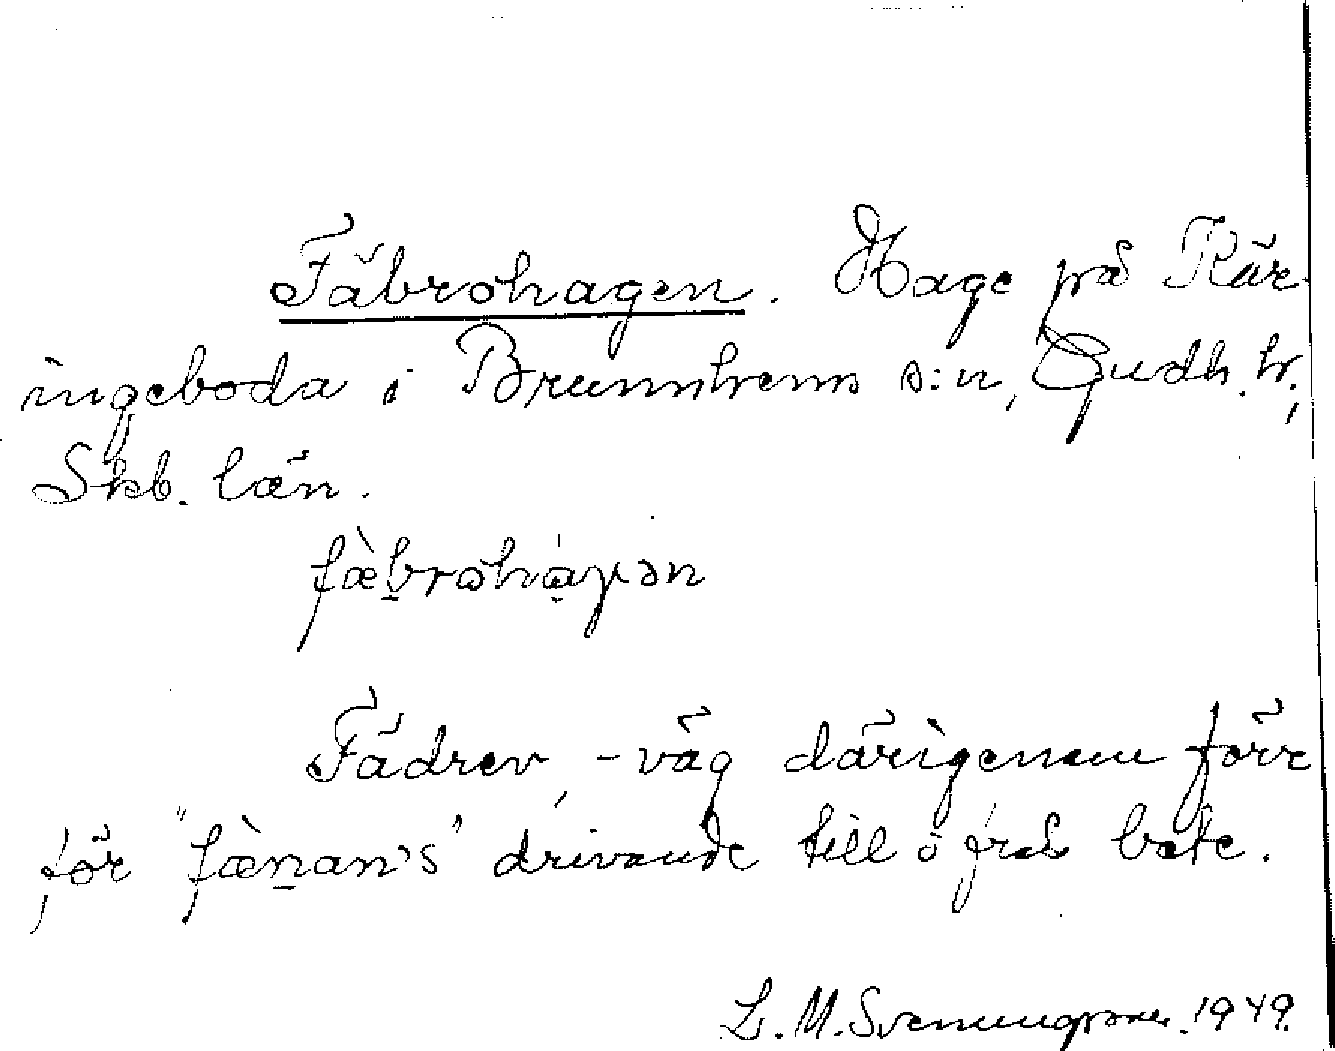 Fäbrohagen. Hage på Kär-
ingeboda i Brunnhems s:n, Gudh. hr,
Skb. län.
fæ̀brohàγən
Fädrev, -väg därigenom förr
för "fæ̀nan's" drivande till o från bete.
L. M. Svenungsson. 1949.